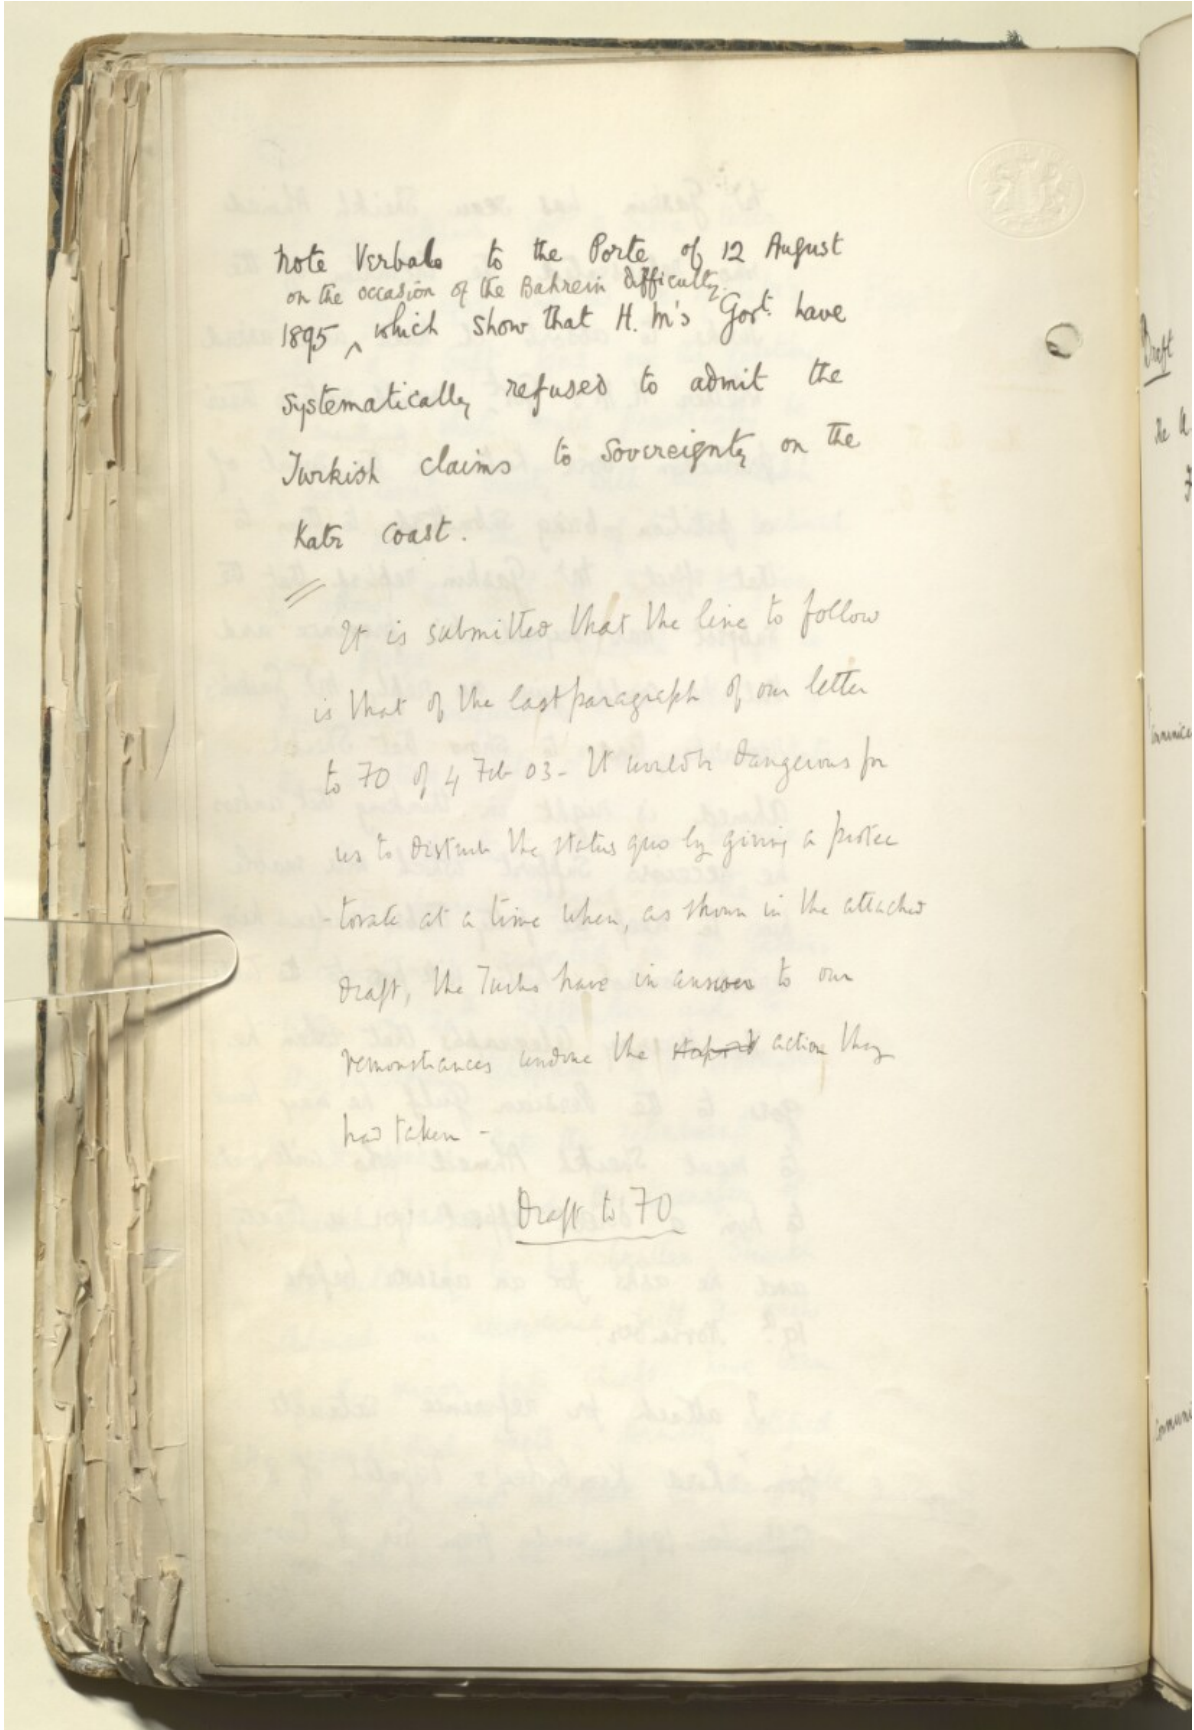 Note Verbale to the Porte of 12 August
on the occasion of the Bahrein difficulty.
1895 ‸ which show that H. M's Govt. have
systematically refused to admit the
Turkish claims to Sovereignty on the
Katr coast.
It is submitted that the line to follow
is that of the last paragraph of our letter
to 70 of 4 Feb 03 - It would be dangerous for
us to disturb the status quo by giving a protec
torate at a time when, as shown in the attached
draft, the Turks have in answer to our
remonstrances undone the action they
had taken -
Draft to 70
Draft